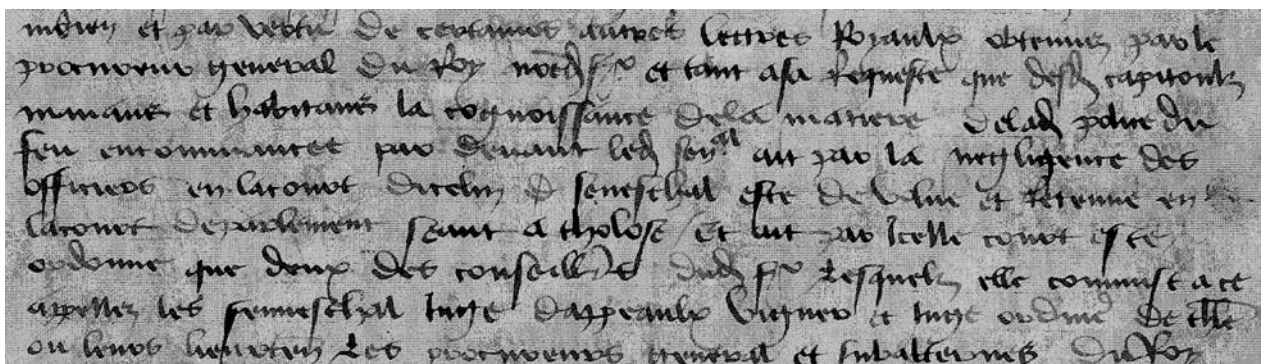 et par vertu de certaines autres lettres Royaulx obtenues par le
procureur general du Roy nostred sr et tant a sa Requeste que desd capitoulz
manans et habitans la cognoissance de la matiere delad
feu encommancee par devant led senal ait par la negligence des
officiers en la court dicelluy seneschal este devolue et Retenue en
la court de parlement seant a tholose Et ait par Icelle court este
ordonne que deux des conseillers dud sr lesquelz elle commist a ce
appellez les senneschal Juge dappeaulx viguier et Juge ordinre de thle
ou leurs lieuxten les procureurs general et subalternes du Roy